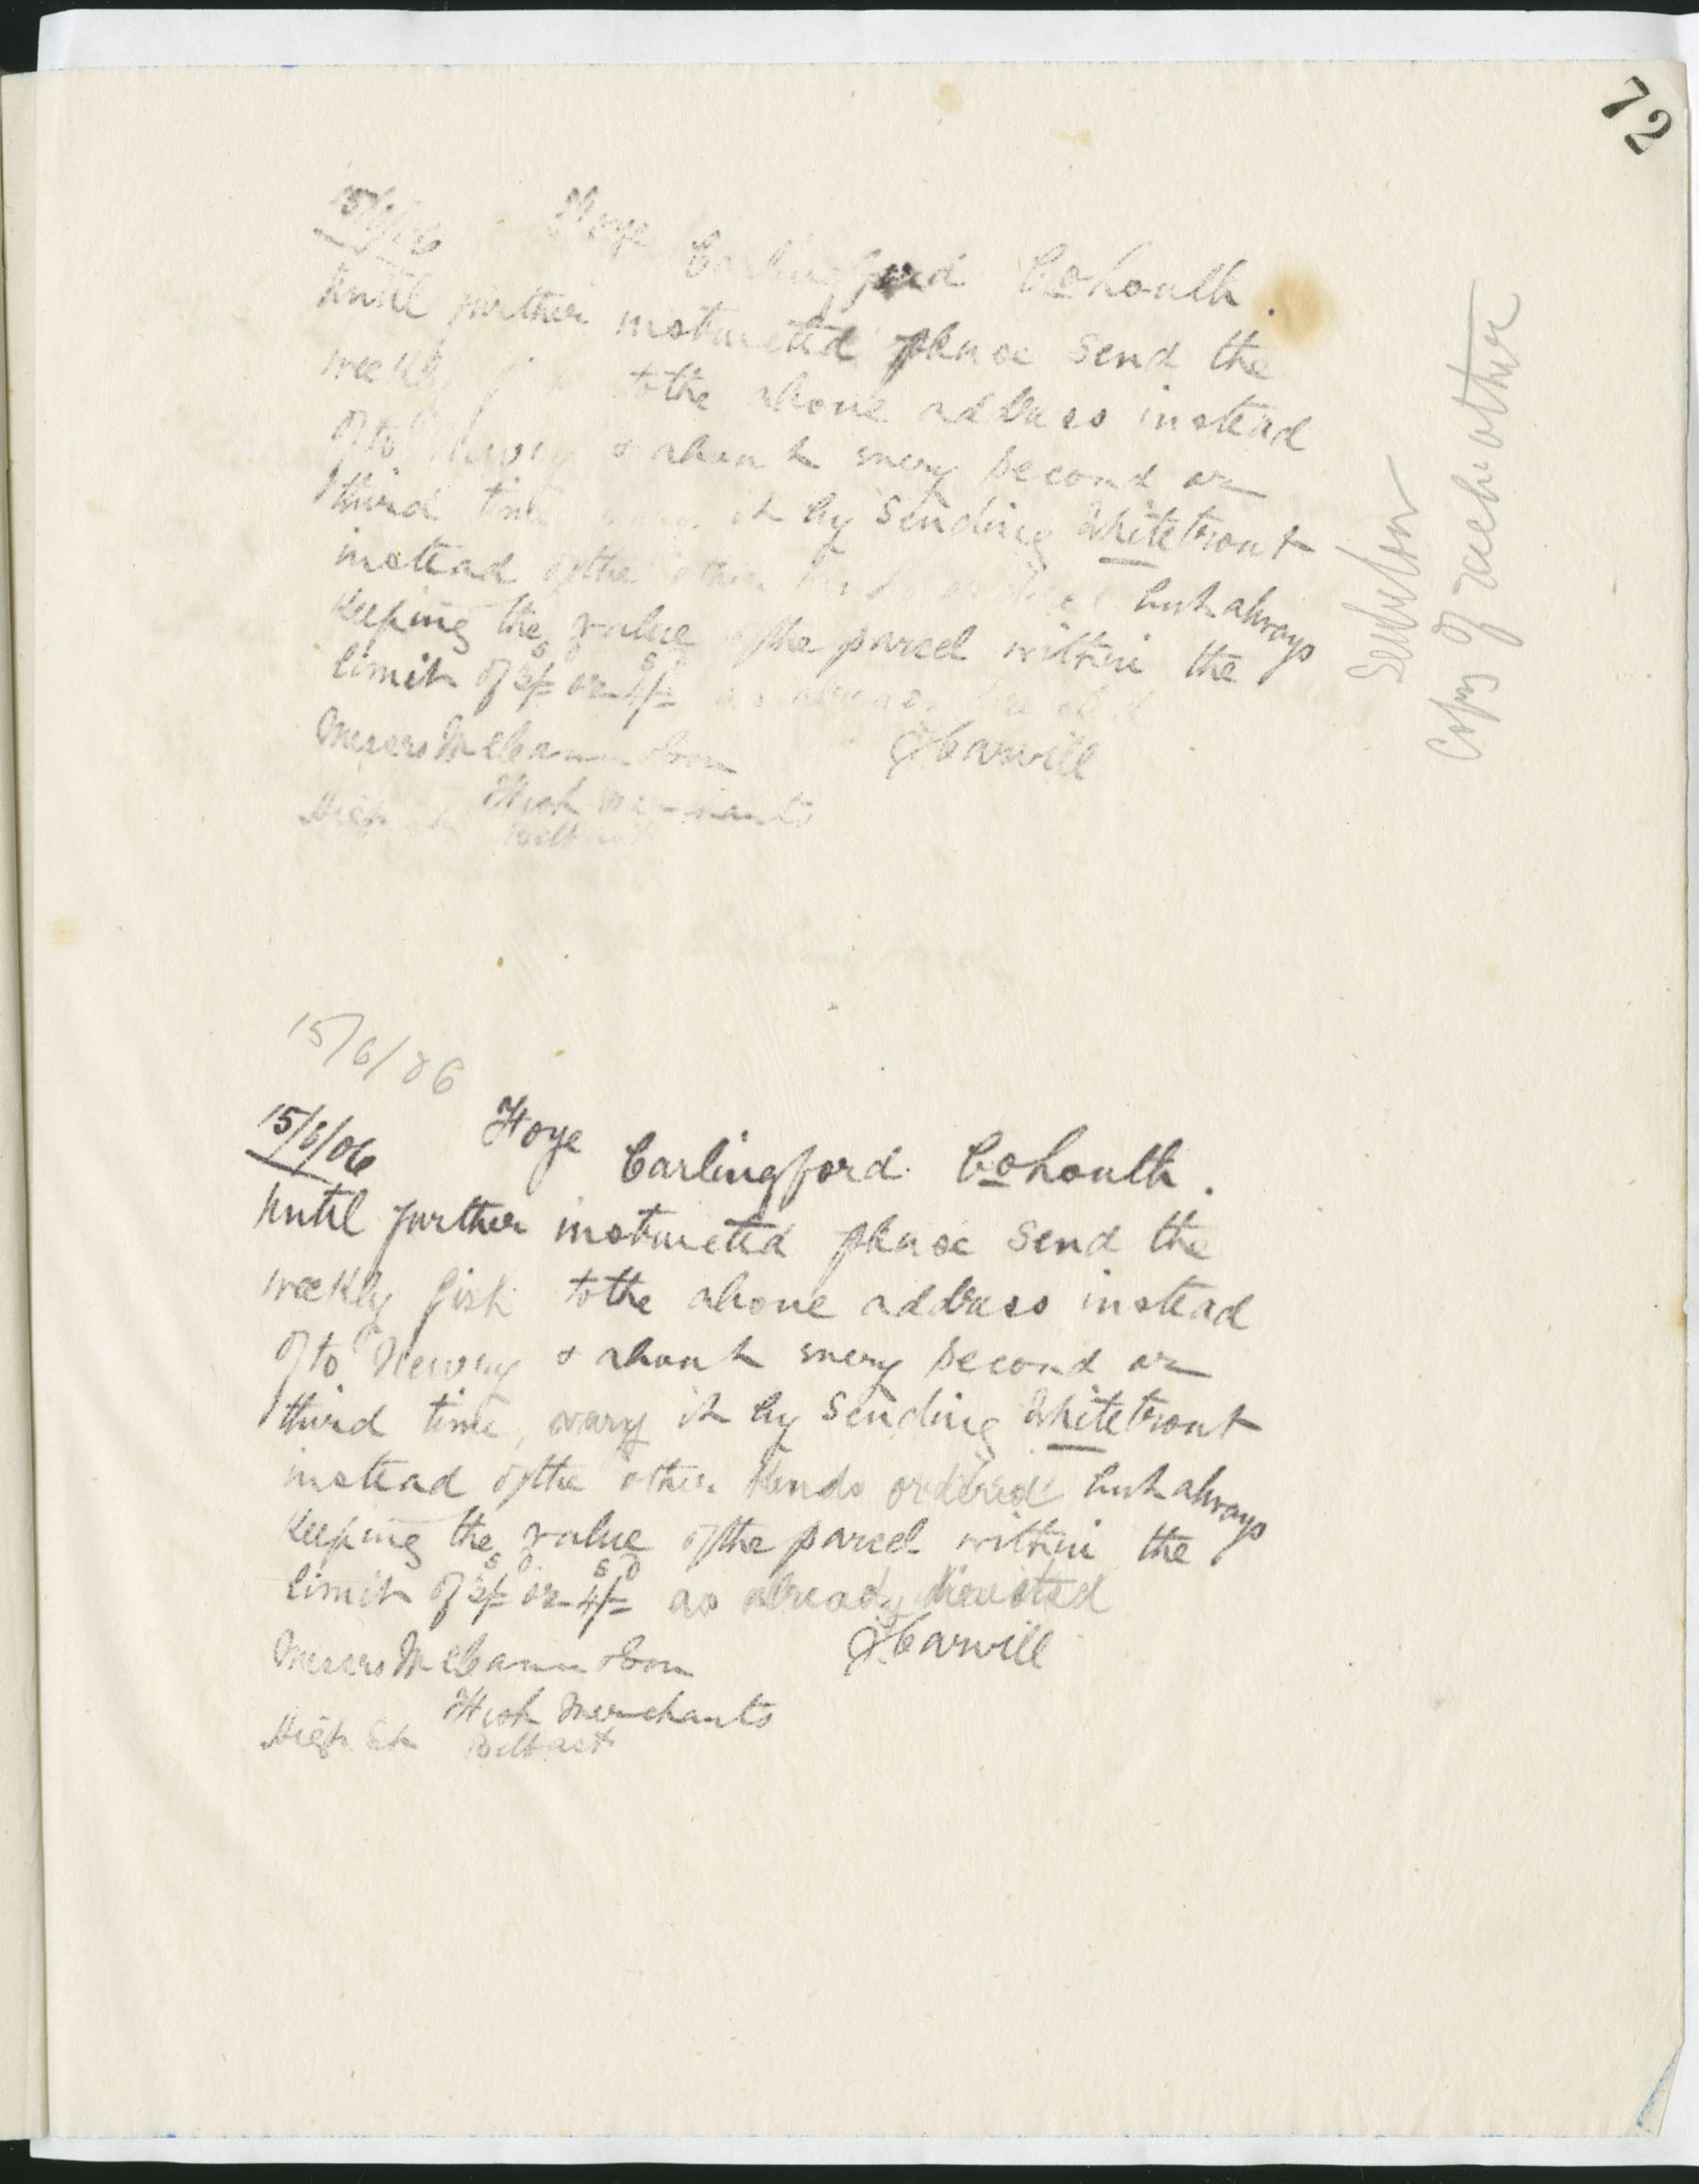 72
15/6/06 Foye
Carlingford Co Louth.
Until further instructed please send the
weekly to the above address instead
of to Newry & about every second or
third time it by sending White trout
instead of the other kinds but always
keeping the value of the parcel within the
limit of 3s/=d or 4s/=d as already
Messrs McCann & Son JCarvill
Fish Merchants
High St Belfast
See below
Copy of each other
15/6/06
15/6/06 Foye
Carlingford. Co Louth.
Until further instructed please send the
weekly fish to the above address instead
of to Newry & about every second or
third time, vary it by sending White trout
instead of the other kinds ordered but always
keeping the value of the parcel within the
limit of 3s/=d or 4s/=d as already directed
Messrs McCann & Son JCarvill
Fish Merchants
High St Belfast